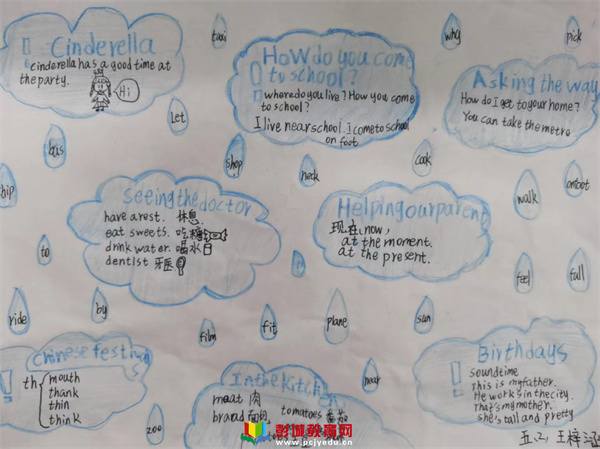 Cinderella
cinderella has a good time at
the party.
Hi
taxi
How do you come
to school?
where do you live? How you come
to school?
I live near school. I come to school
on foot.
why
pick
Asking the way
How do I get to your home?
You can take the metro
Let
bus
shop
neck
cook
hip
walk
onfoot
Seeing the doctor
have a rest. 休息
eat sweets. 吃糖
drink water. 喝水
dentist 牙医
Helping our parent
现在 now,
at the moment.
at the present.
to
feel
fall
ride
by
film
fit
plane
sun
near
zoo
Chinese festivals
th
mouth
thank
thin
think
In the kitchen
meat 肉
bread 面包
tomatoes 番茄
Birthdays
soundtime
This is my father.
He works in the city.
That's my mother.
she's tall and pretty
五、2, 王梓涵
彭城教育网
www.pcjyedu.cn